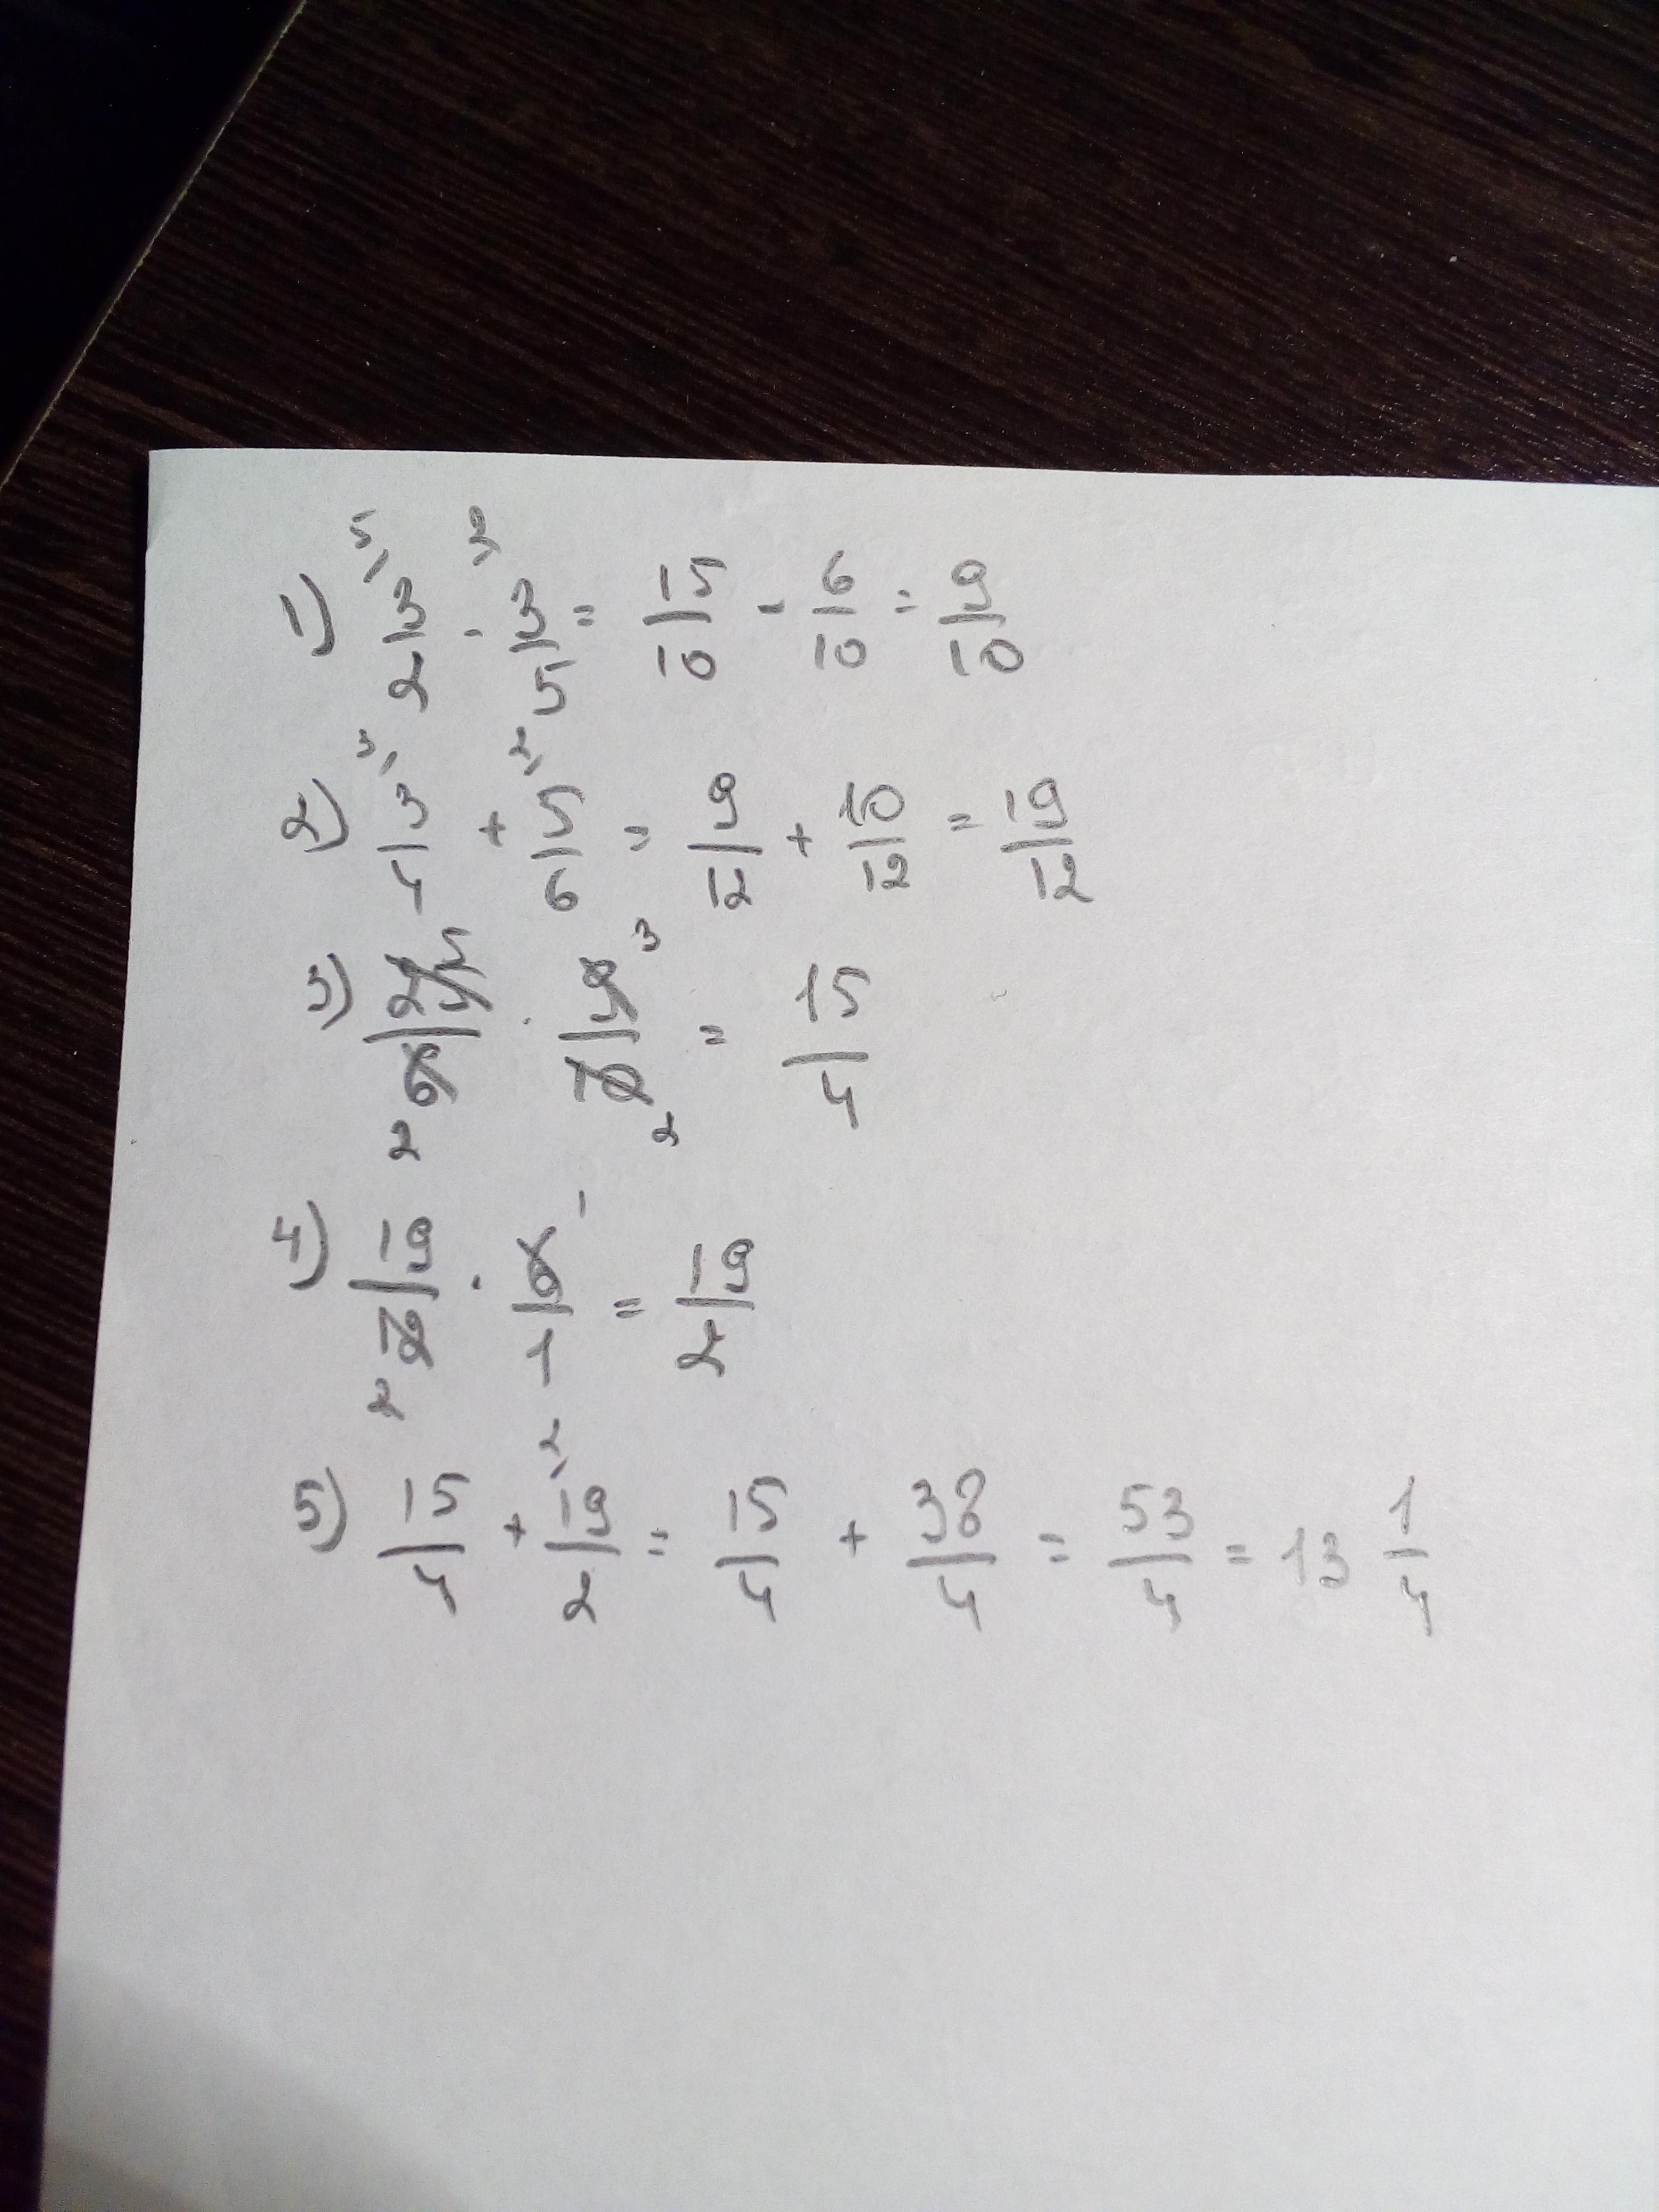 1) 3/2 \5 - 3/5 \2 = 15/10 - 6/10 = 9/10
2) 3/4 \3 + 5/6 \2 = 9/12 + 10/12 = 19/12
3) 25 5/6 2 · 9 3/10 2 = 15/4
4) 19/12 2 · 6 1/1 = 19/2
5) 15/4 + 19/2 \2 = 15/4 + 38/4 = 53/4 = 13 1/4